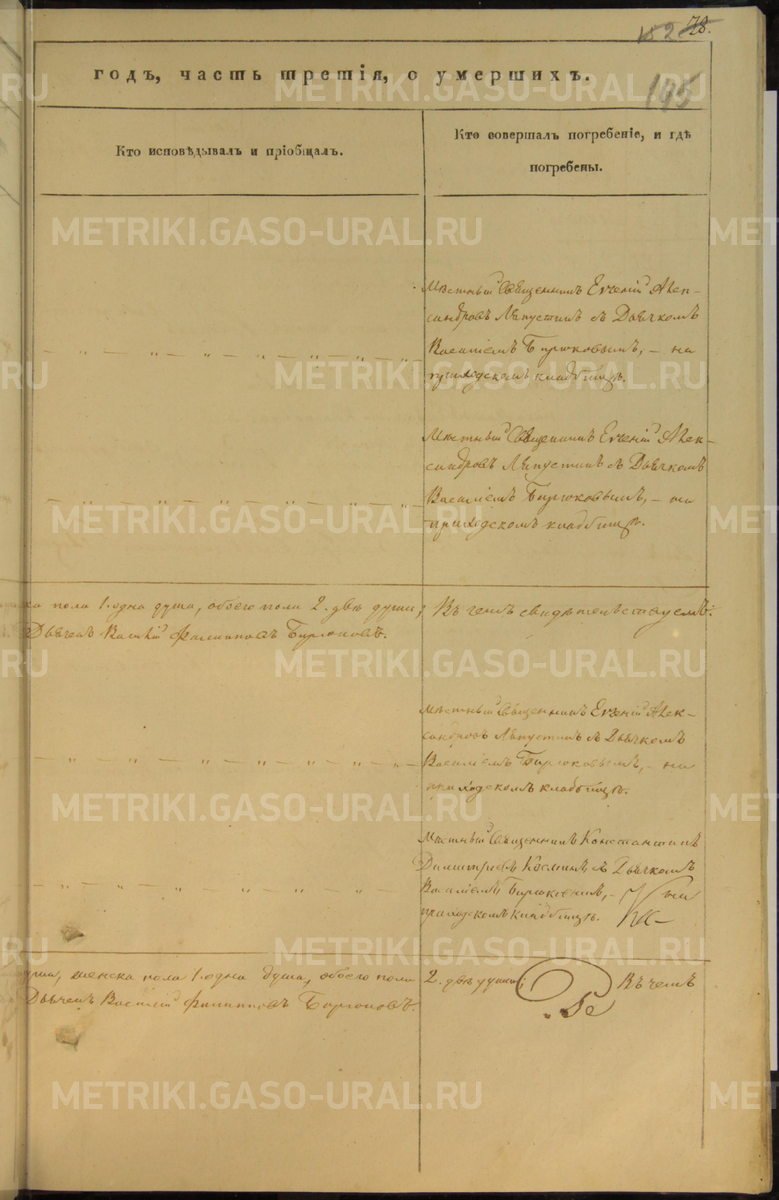 152 78.
195
годъ, часть третія, о умершихъ.
Кто исповѣдывалъ и пріобщалъ.
Кто совершалъ погребеніе, и гдѣ
погребены.
METRIKI.GASO-URAL.RU
Мѣстный Священникъ Евгеній Алек-
сандровъ Ляпустинъ съ Дьячкомъ
Василіемъ Бирюковымъ, – на
приходскомъ кладбищѣ.
— „ — „ — „ — „ — „ — „ — „
Мѣстный Священникъ Евгеній Алек-
сандровъ Ляпустинъ съ Дьячкомъ
Василіемъ Бирюковымъ, – на
приходскомъ кладбищѣ.
— „ — „ — „ — „ — „ — „ — „
ка пола 1. одна душа, обоего пола 2. двѣ души; Въ чемъ свидѣтельствуемъ:
Дьячекъ Василій Филипповъ Бирюковъ.
Мѣстный Священникъ Евгеній Алек-
сандровъ Ляпустинъ съ Дьячкомъ
Василіемъ Бирюковымъ, – на
приходскомъ кладбищѣ.
— „ — „ — „ — „ — „ — „ — „
Мѣстный Священникъ Константинъ
Димитріевъ съ Дьячкомъ
Василіемъ Бирюковымъ, – на
приходскомъ кладбищѣ.
— „ — „ — „ — „ — „ — „
уша, женска пола 1. одна душа, обоего пола 2. двѣ души; Въ чемъ
Дьячекъ Василій Филипповъ Бирюковъ.